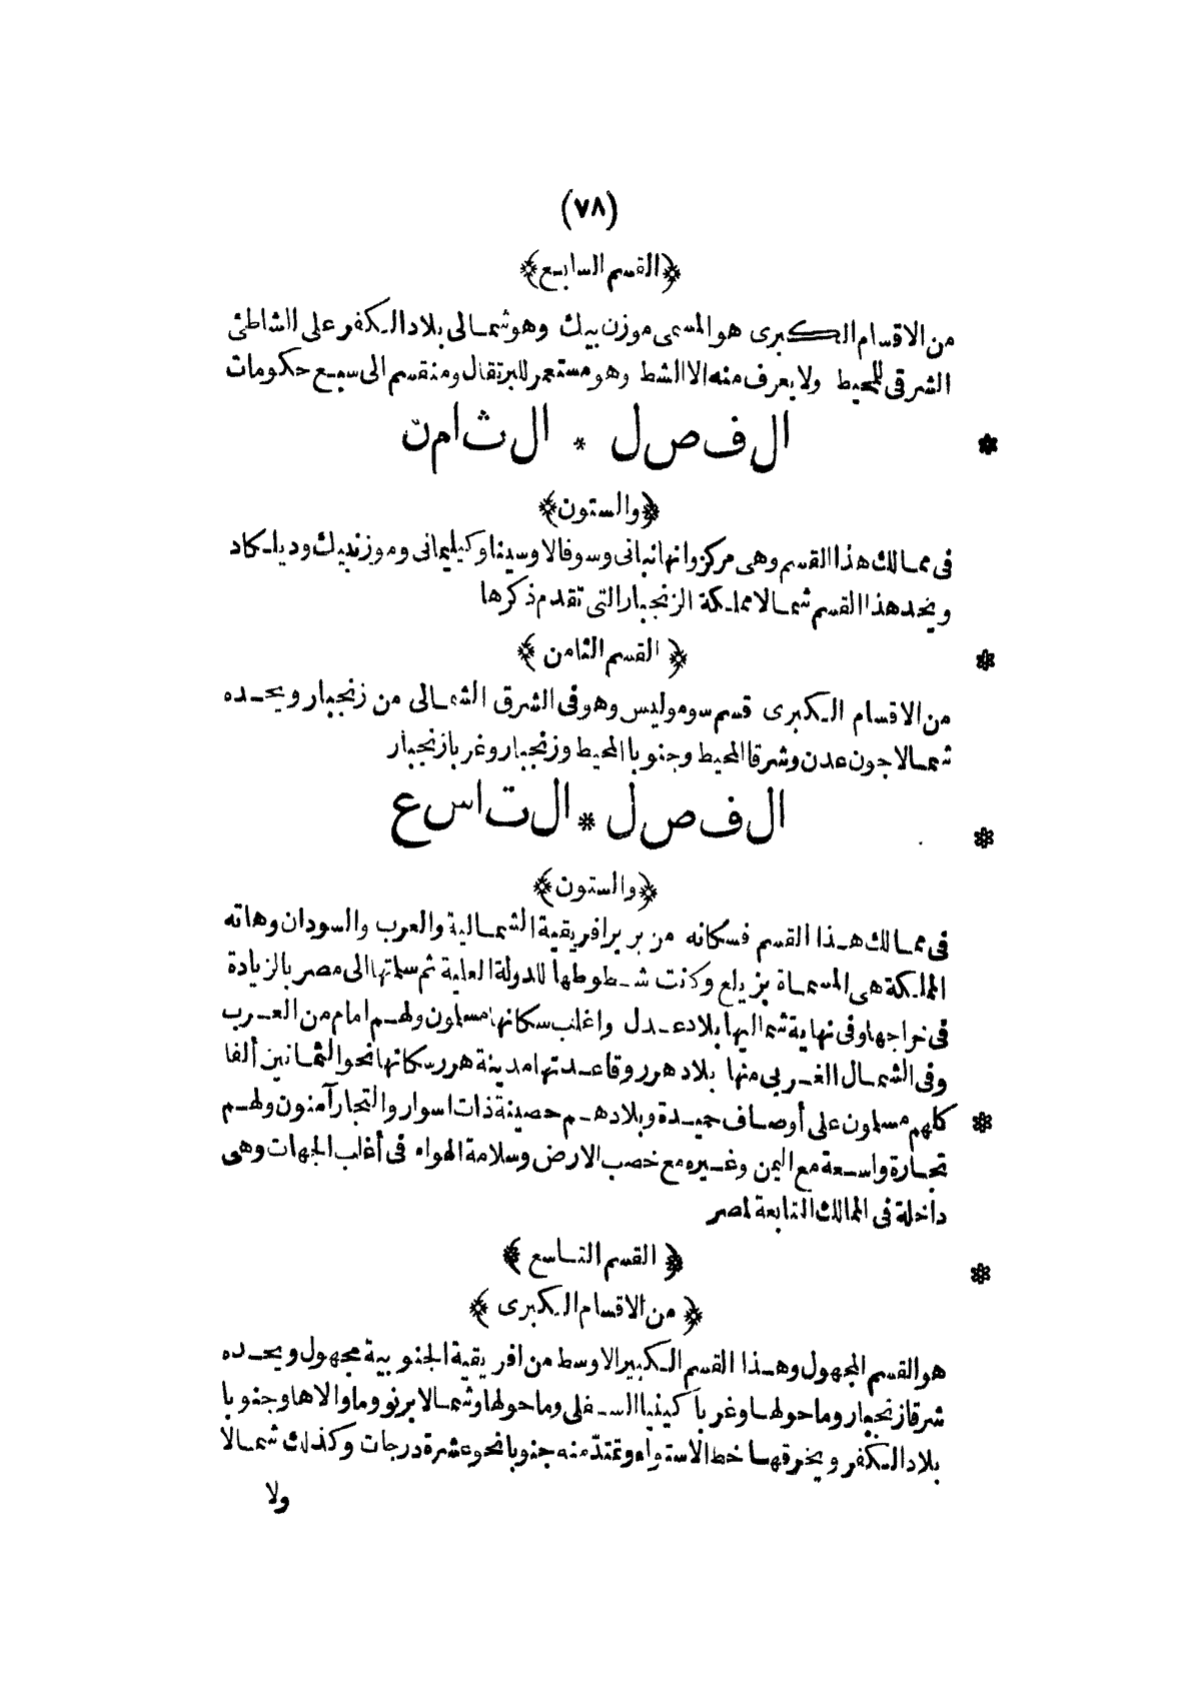 (٧٨)
﴿القسم السابع﴾
من الاقسام الكبرى هو المسمى موزن بيك وهو شمالى بلاد الكفر على الشاطئ
الشرقى للمحيط ولا يعرف منه الا الشط وهو مستعمر للبرتقال ومنقسم الى سبع حكومات
* الفصل * الثامن
﴿والستون﴾
فى ممالك هذا القسم وهى مركز وانهانبانى وسوفالا وسينا وكيليمانى وموزنبيك وديلكاد
ويحد هذا القسم شمالا مملكة الزنجبار التى تقدم ذكرها
* ﴿القسم الثامن﴾
من الاقسام الكبرى قسم سوموليس وهو فى الشرق الشمالى من زنجبار ويحده
شمالا جون عدن وشرقا المحيط وجنوبا المحيط وزنجبار وغربا زنجبار
* الفصل * التاسع
﴿والستون﴾
فى ممالك هذا القسم فسكانه من بربر افريقية الشمالية والعرب والسودان وهاته
المملكة هى المسماة بزيلع وكانت شطوطها للدولة العلية ثم سلمتها الى مصر بالزيادة
فى خراجها وفى نهاية شماليها بلاد عدل واغلب سكانها مسلمون ولهم امام من العرب
وفى الشمال الغربى منها بلاد هرر وقاعدتها مدينة هرر سكانها نحو الثمانين ألفا
* كلهم مسلمون على أوصاف حميدة وبلادهم حصينة ذات اسوار والتجار آمنون ولهم
تجارة واسعة مع اليمن وغيره مع خصب الارض وسلامة الهواء فى أغلب الجهات وهى
داخلة فى الممالك التابعة لمصر
* ﴿القسم التاسع﴾
﴿من الاقسام الكبرى﴾
هو القسم المجهول وهذا القسم الكبير الاوسط من افريقية الجنوبية مجهول ويحده
شرقا زنجبار وما حولها وغربا كينيا السفلى وما حولها وشمالا برنو وما والاها وجنوبا
بلاد الكفر ويخرقها خط الاستواء وتمتد منه جنوبا نحو عشرة درجات وكذلك شمالا
ولا